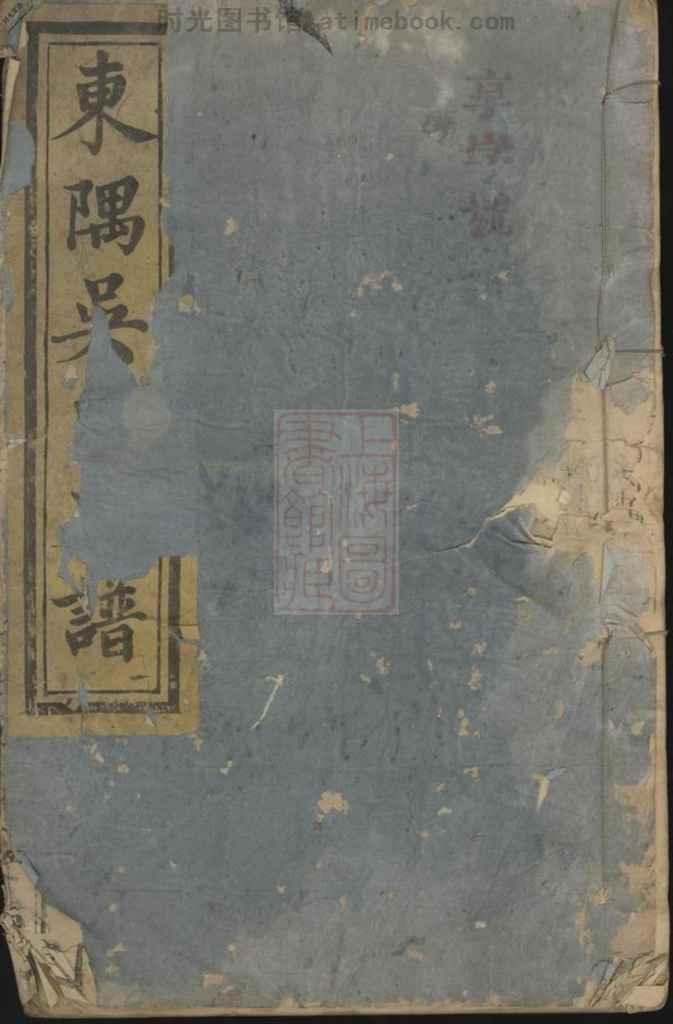 时光图书馆 atimebook.com
亨字號
東隅吳
譜
上海圖
書館藏